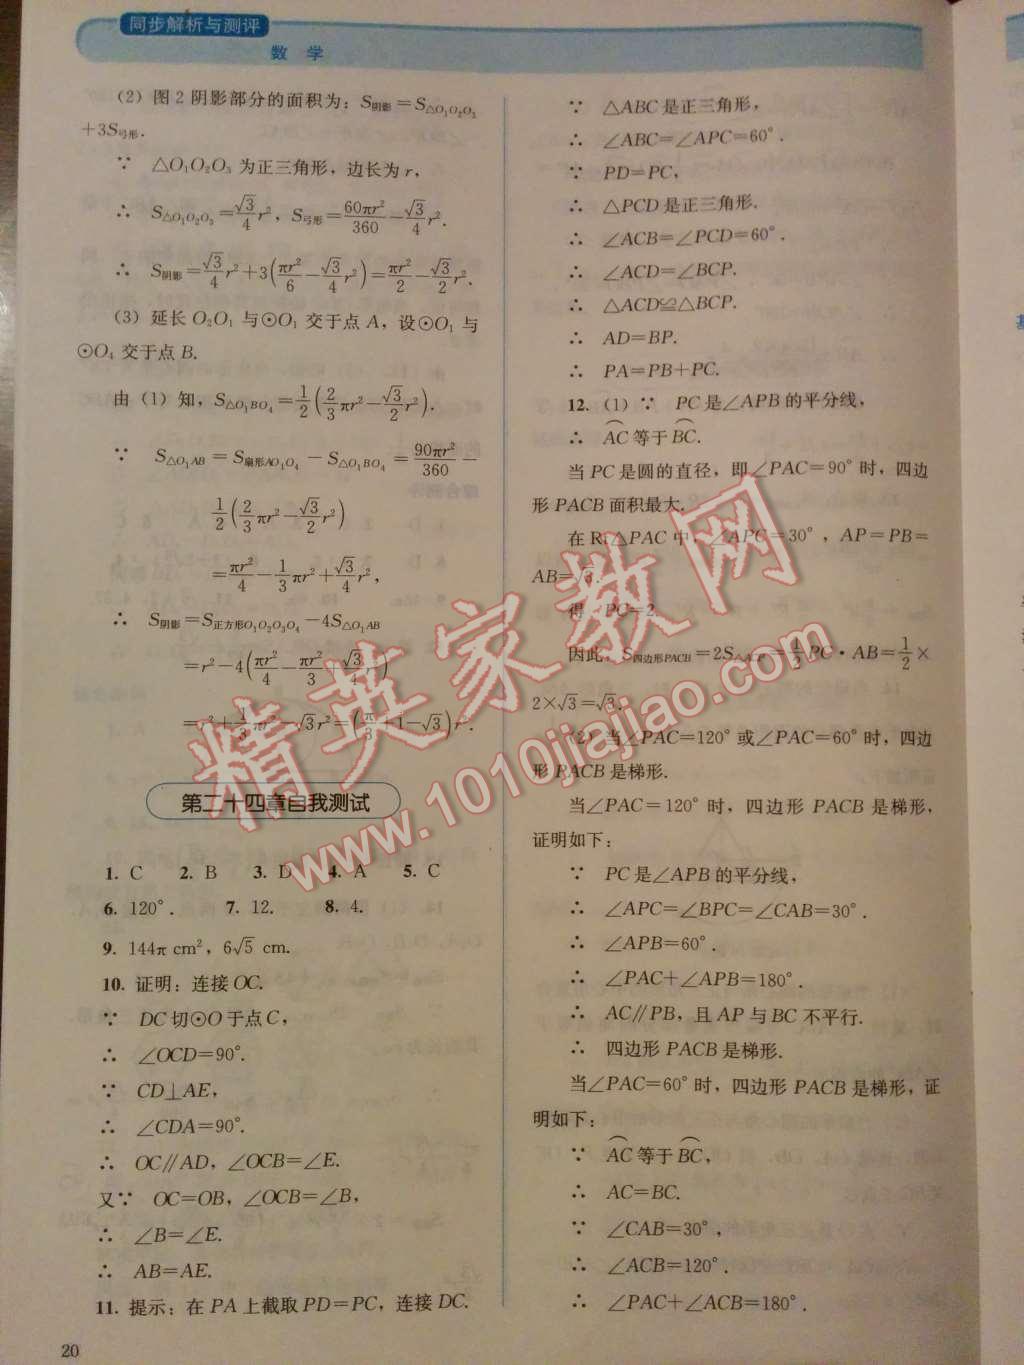 同步解析与测评
数 学
(2) 图 2 阴影部分的面积为：S阴影=S△O₁O₂O₃
+3S弓形.
∵ △O₁O₂O₃ 为正三角形，边长为 r，
∴ S△O₁O₂O₃=√3/4 r²，S弓形=60πr²/360-√3/4 r².
∴ S阴影=√3/4 r²+3(πr²/6-√3/4 r²)=πr²/2-√3/2 r².
(3) 延长 O₂O₁ 与⊙O₁ 交于点 A，设⊙O₁ 与
⊙O₄ 交于点 B.
由 (1) 知，S△O₁BO₄=1/2(2/3 πr²-√3/2 r²).
∵ S△O₁AB=S扇形AO₁O₄-S△O₁BO₄=90πr²/360-
1/2(2/3 πr²-√3/2 r²)
=πr²/4-1/3 πr²+√3/4 r²，
∴ S阴影=S正方形O₁O₂O₃O₄-4S△O₁AB
=r²-4(πr²/4-πr²/3+√3/4 r²)
=r²+1/3 πr²-√3 r²=(π/3+1-√3)r².
第二十四章自我测试
1. C 2. B 3. D 4. A 5. C
6. 120°. 7. 12. 8. 4.
9. 144π cm²，6√5 cm.
10. 证明：连接 OC.
∵ DC 切⊙O 于点 C，
∴ ∠OCD=90°.
∵ CD⊥AE，
∴ ∠CDA=90°.
∴ OC∥AD，∠OCB=∠E.
又∵ OC=OB，∠OCB=∠B，
∴ ∠B=∠E.
∴ AB=AE.
11. 提示：在 PA 上截取 PD=PC，连接 DC.
20
∵ △ABC 是正三角形，
∴ ∠ABC=∠APC=60°.
∵ PD=PC，
∴ △PCD 是正三角形.
∴ ∠ACB=∠PCD=60°.
∴ ∠ACD=∠BCP.
∴ △ACD≌△BCP.
∴ AD=BP.
∴ PA=PB+PC.
12. (1) ∵ PC 是∠APB 的平分线，
∴ ⌒AC 等于 ⌒BC.
当 PC 是圆的直径，即∠PAC=90° 时，四边
形 PACB 面积最大.
在 Rt△PAC 中，∠APC=30°，AP=PB=
AB=√3.
得 PC=2.
因此，S四边形PACB=2S△ACP=1/2 PC·AB=1/2×
2×√3=√3.
(2) 当∠PAC=120° 或∠PAC=60° 时，四边
形 PACB 是梯形.
当∠PAC=120° 时，四边形 PACB 是梯形，
证明如下：
∵ PC 是∠APB 的平分线，
∴ ∠APC=∠BPC=∠CAB=30°.
∴ ∠APB=60°.
∴ ∠PAC+∠APB=180°.
∴ AC∥PB，且 AP 与 BC 不平行.
∴ 四边形 PACB 是梯形.
当∠PAC=60° 时，四边形 PACB 是梯形，证
明如下：
∵ ⌒AC 等于 ⌒BC，
∴ AC=BC.
∵ ∠CAB=30°，
∴ ∠ACB=120°.
∴ ∠PAC+∠ACB=180°.
精英家教网
www.1010jiajiao.com